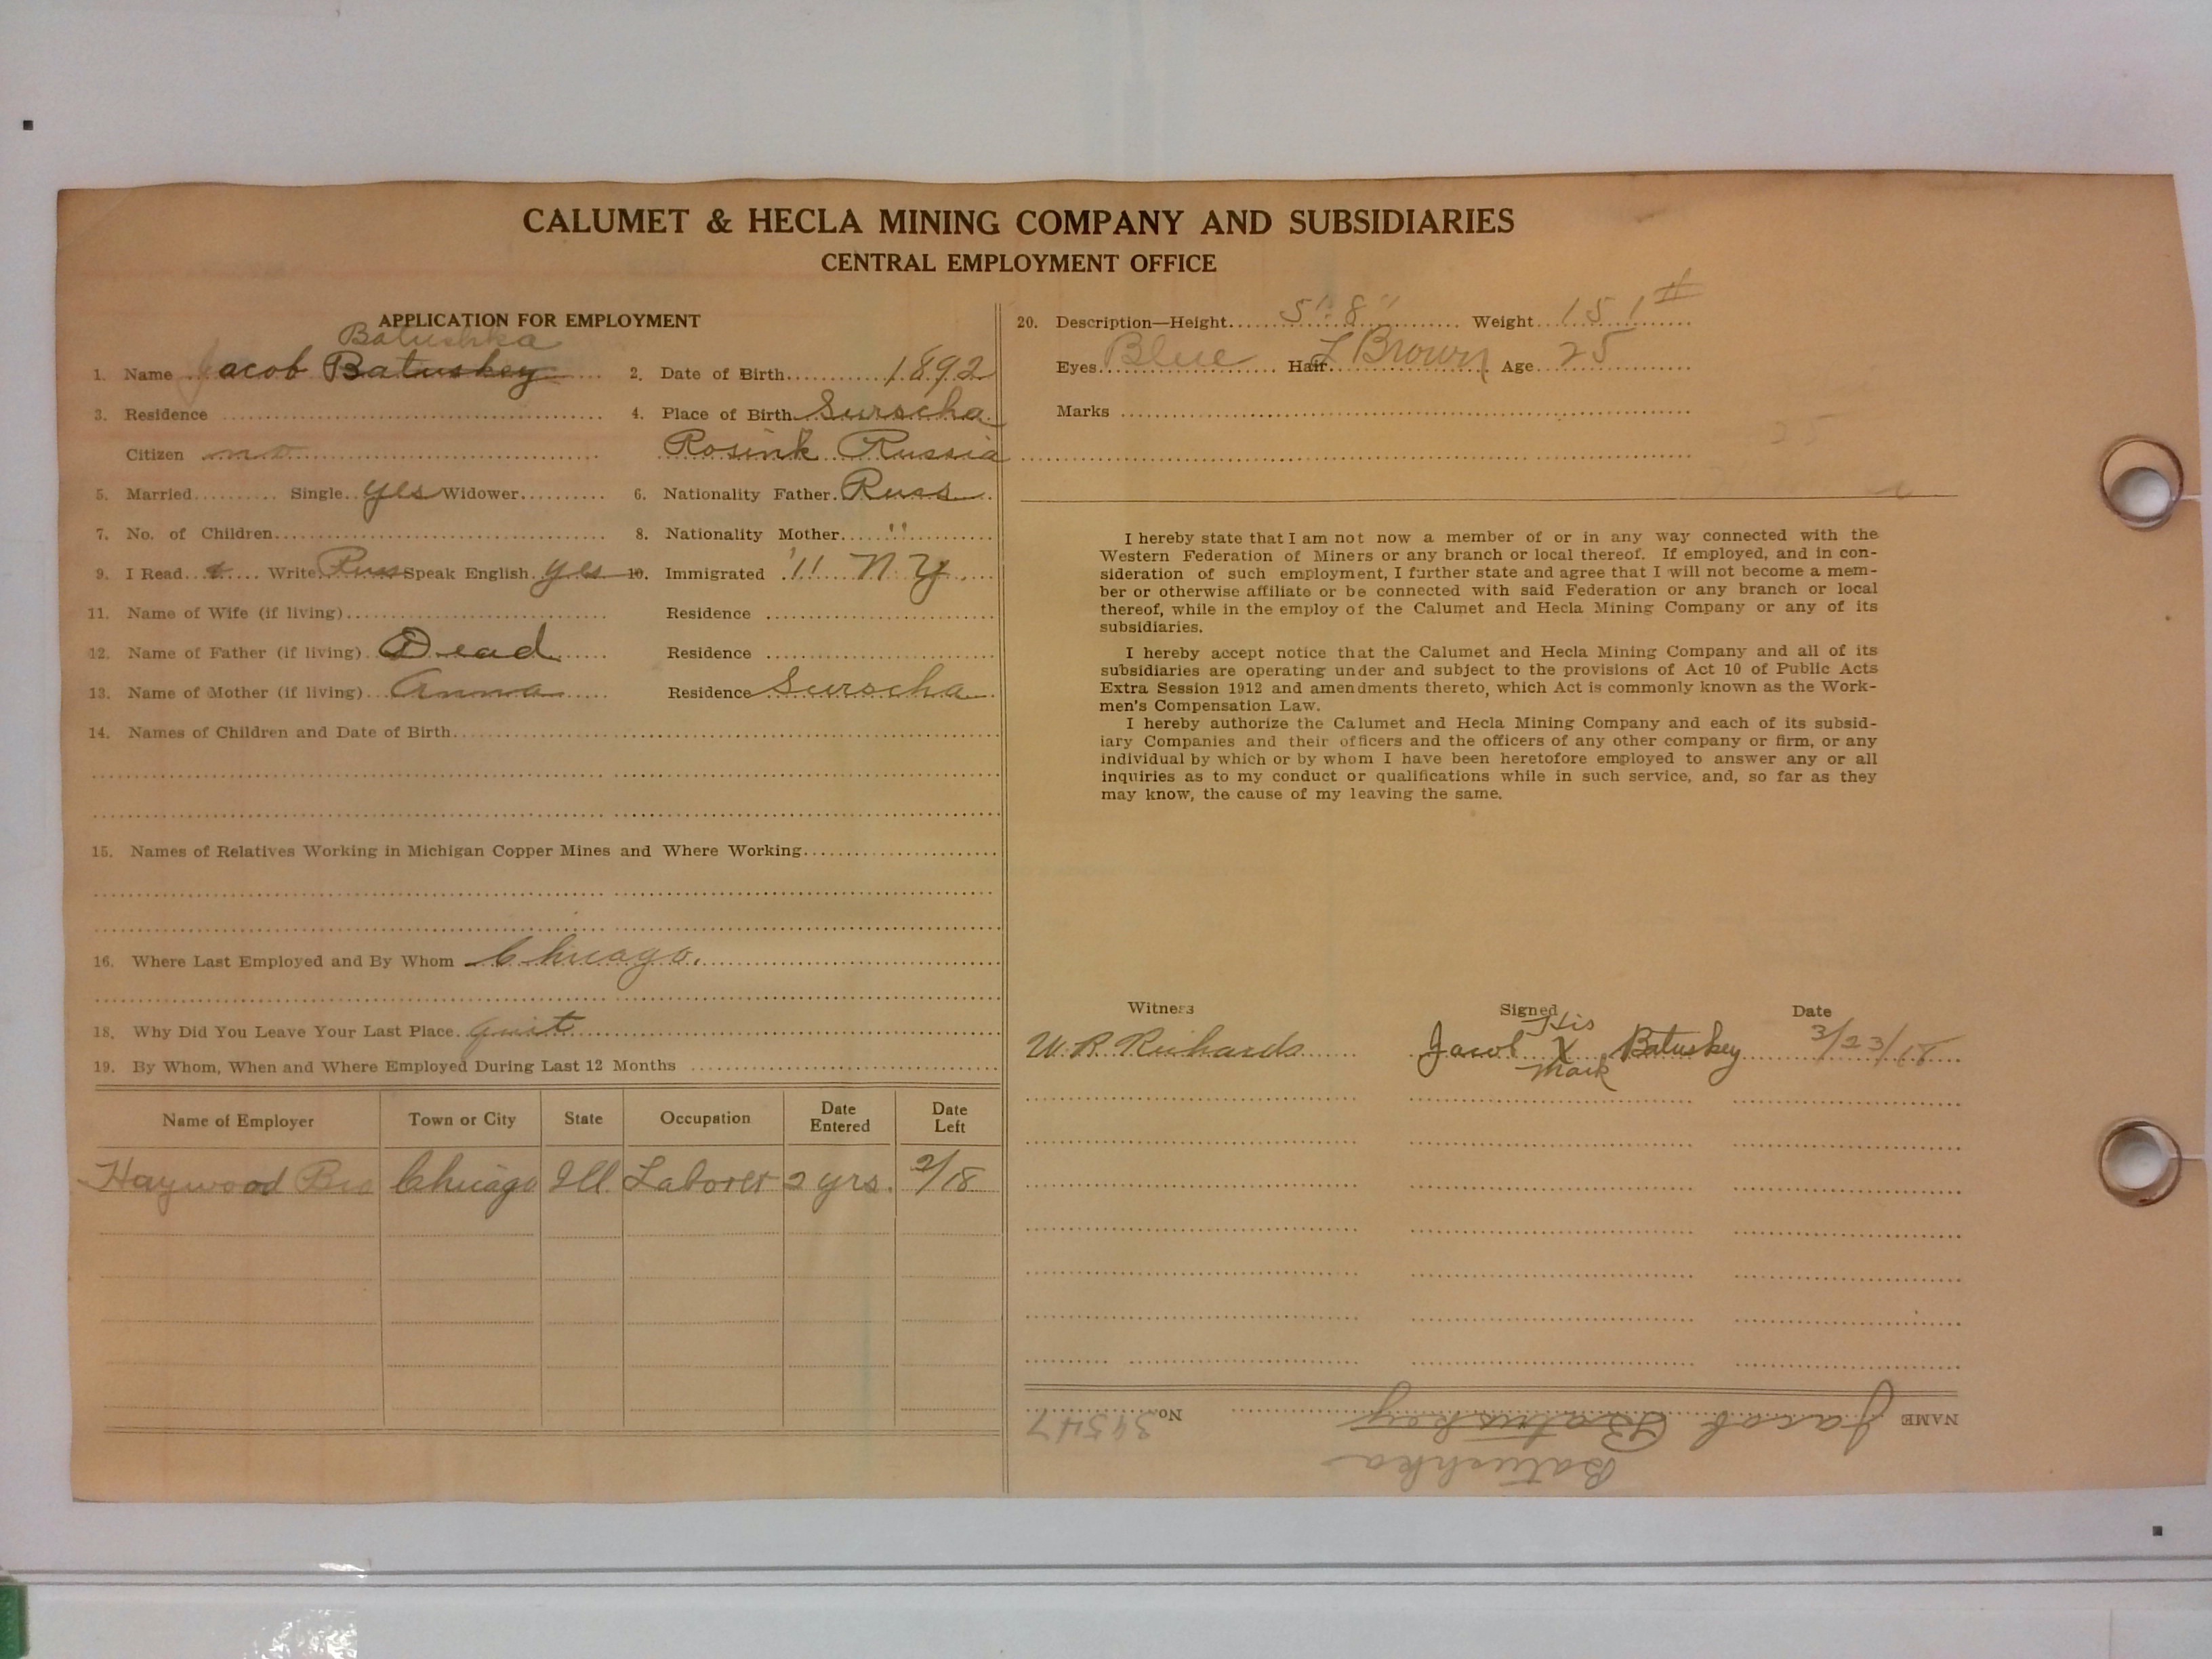 CALUMET & HECLA MINING COMPANY AND SUBSIDIARIES
CENTRAL EMPLOYMENT OFFICE
APPLICATION FOR EMPLOYMENT
Batushka
1. Name Jacob Batuskey 2. Date of Birth 1892
3. Residence 4. Place of Birth Surscha
Citizen no Rosink Russia
5. Married Single yes Widower 6. Nationality Father Russ
7. No. of Children 8. Nationality Mother "
9. I Read & Write Russ Speak English yes 10. Immigrated '11 N.Y.
11. Name of Wife (if living) Residence
12. Name of Father (if living) Dead Residence
13. Name of Mother (if living) Anna Residence Surscha
14. Names of Children and Date of Birth
15. Names of Relatives Working in Michigan Copper Mines and Where Working
16. Where Last Employed and By Whom Chicago.
18. Why Did You Leave Your Last Place. Quit
19. By Whom, When and Where Employed During Last 12 Months
Name of Employer Town or City State Occupation Date Entered Date Left
Haywood Bro Chicago Ill. Laborer 2 yrs. 2/18
20. Description—Height 5' 8" Weight 151#
Eyes Blue Hair L Brown Age 25
Marks
I hereby state that I am not now a member of or in any way connected with the
Western Federation of Miners or any branch or local thereof. If employed, and in con-
sideration of such employment, I further state and agree that I will not become a mem-
ber or otherwise affiliate or be connected with said Federation or any branch or local
thereof, while in the employ of the Calumet and Hecla Mining Company or any of its
subsidiaries.
I hereby accept notice that the Calumet and Hecla Mining Company and all of its
subsidiaries are operating under and subject to the provisions of Act 10 of Public Acts
Extra Session 1912 and amendments thereto, which Act is commonly known as the Work-
men's Compensation Law.
I hereby authorize the Calumet and Hecla Mining Company and each of its subsid-
iary Companies and their officers and the officers of any other company or firm, or any
individual by which or by whom I have been heretofore employed to answer any or all
inquiries as to my conduct or qualifications while in such service, and, so far as they
may know, the cause of my leaving the same.
Witness Signed Date
His
W. R. Richards Jacob X Batuskey 3/23/18
Mark
Batushka
NAME Jacob Batuskey No. 39547